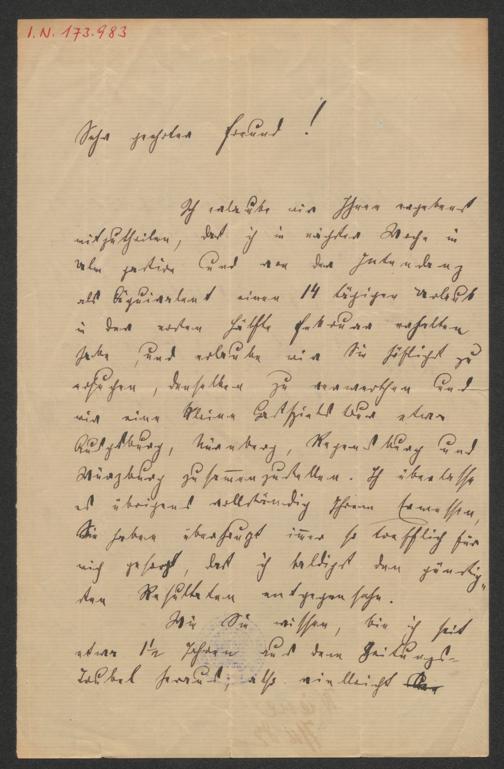 I.N. 173.983
Sehr geehrter Freund!
Ich erlaube mir Ihnen ergebenst
mitzutheilen, daß ich in nächster Woche in
Ulm gastire und von der Intendanz
als Equivalent einen 14 tägigen Urlaub
in der ersten Hälfte Februar erhalten
habe, und erlaube mir Sie höflichst zu
ersuchen, denselben zu verwerthen und
mir eine kleine Gastspieltour etwa
Augsburg, Nürnberg, Regensburg und
Würzburg zusammenzustellen. Ich überlasse
es übrigens vollständig Ihrem Ermessen,
Sie haben überhaupt immer so trefflich für
mich gesorgt, daß ich baldigst den günstig-
sten Resultaten entgegensehe.
Wie Sie wissen, bin ich seit
etwa 1½ Jahren aus dem Zeitungs-
Trubel heraus, also vielleicht